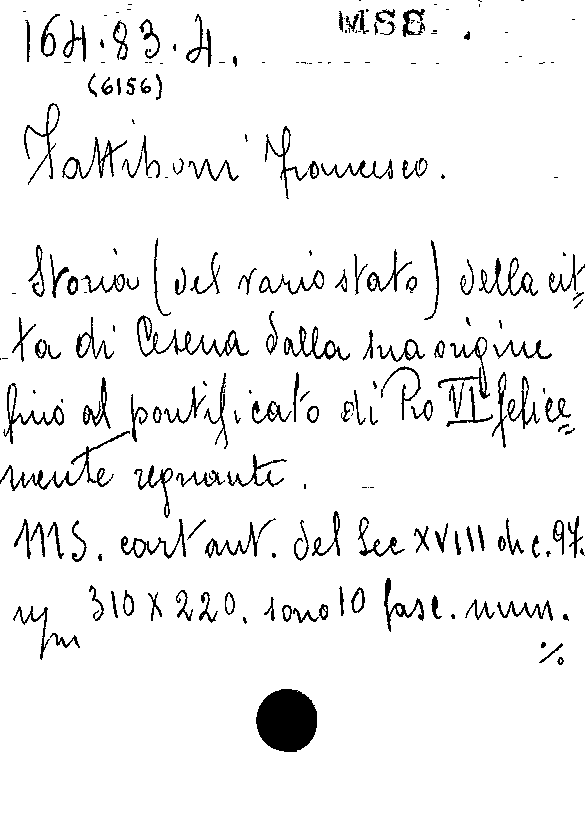 164.83.4. MSS.
(6156)
Fattiboni Francesco.
Storia (del vario stato) della cit=
ta di Cesena dalla sua origine
fino al pontificato di Pio VI felice=
mente regnante.
MS. cart aut. del Sec XVIII di c. 97.
mm 310 x 220. sono 10 fasc. num.
%